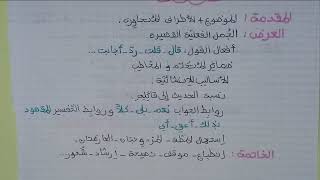 المقدمة: الموضوع + الأطراف المتحاورة.
العرض: الجمل الفعلية القصيرة
أفعال القول: قال - قلت - رد - أجابت ..
ضمائر المتكلم و المخاطب
الأساليب الإنشائية
نسبة الحديث إلى قائله
روابط الجواب نعم - بلى - كلا و روابط التفسير المقصود
بذلك - أعني - أي
الخاتمة: إنطباع - موقف - نصيحة - إرشاد - شعور -